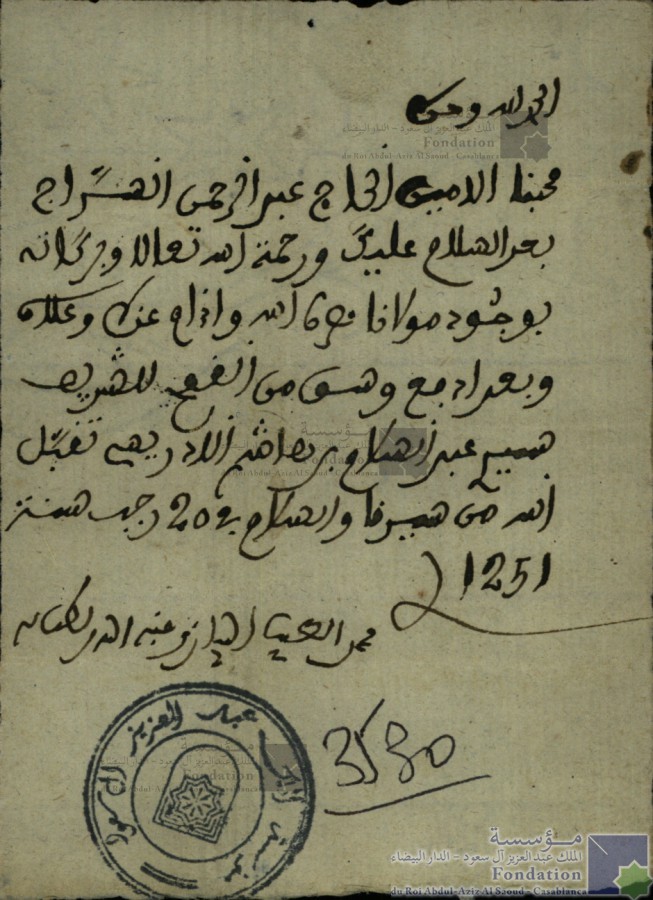 الحمد لله وحده
محبنا الامين الحاج عبد الرحمن السراج
بعد السلام عليك ورحمة الله تعالى وبركاته
بوجود مولانا نصره الله
وبعد ادفع وسق من القمح للشريف
سيدي عبد السلام بن هاشم الادريسي تقبل
الله من سيدنا والسلام في 20 رجب سنة
1251
3530
عبد العزيز آل سعود
مؤسسة
الملك عبد العزيز آل سعود - الدار البيضاء
Fondation
du Roi Abdul-Aziz Al Saoud - Casablanca